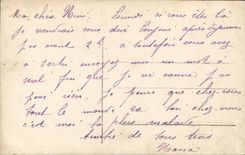 Ma chère Mimi. Lundi si vous êtes là
je voudrais vous dire bonjour après déjeuner
pas avant 2h si toutefois vous avez
à sortir envoyez moi un mot à
seul fin que je ne vienne pas
pour rien. Je pense que chez vous
tout le monde va bien chez nous
c'est moi la plus malade
de vous tous